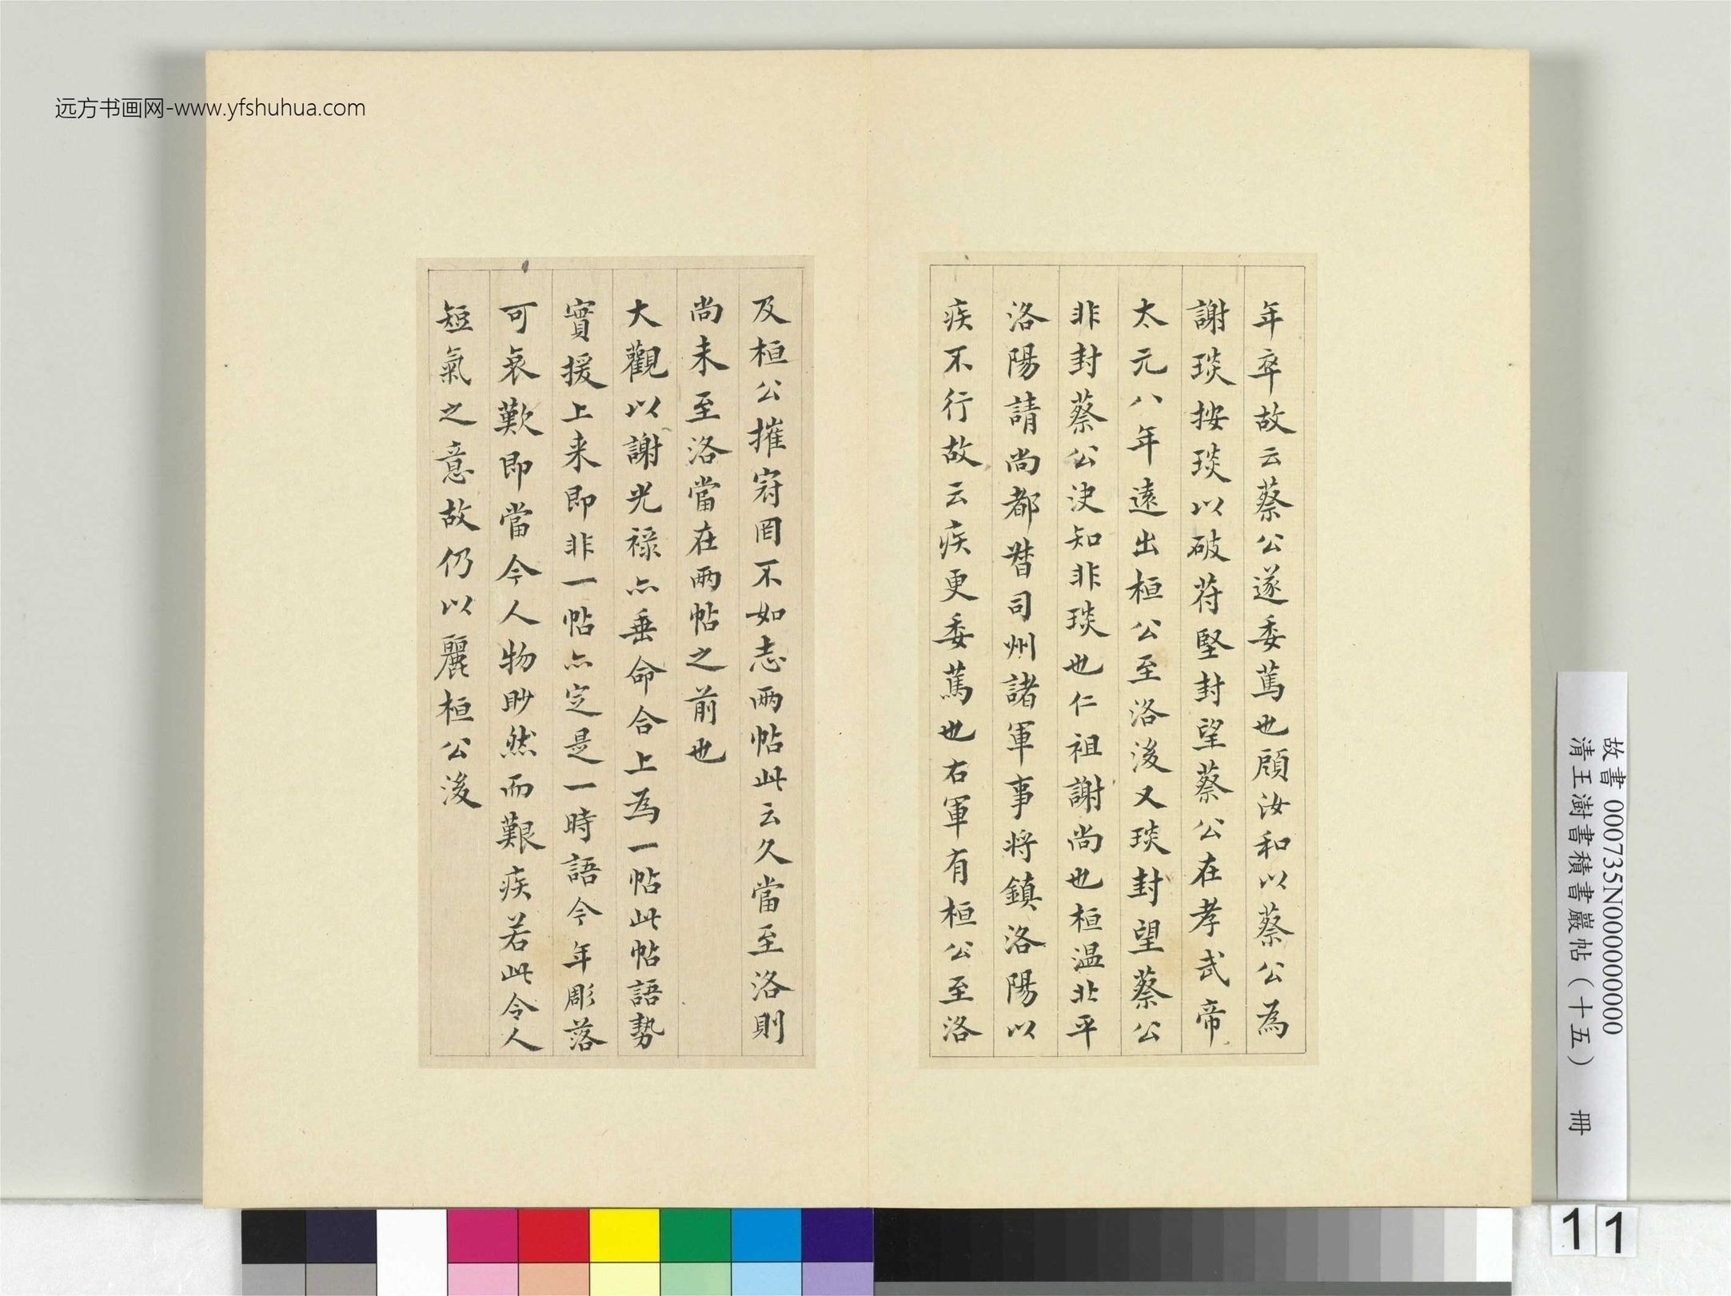 远方书画网-www.yfshuhua.com
年卒故云蔡公遂委萬也頋汝和以蔡公為
謝琰按琰以破苻堅封望蔡公在孝武帝
太元八年遠出桓公至洛後又琰封望蔡公
非封蔡公决知非琰也仁祖謝尚也桓温北平
洛陽請尚都督司州諸軍事将鎮洛陽以
疾不行故云疾更委萬也右軍有桓公至洛
及桓公摧寇罔不如志兩帖此云久當至洛則
尚未至洛當在兩帖之前也
大觀以謝光禄亦垂命合上為一帖此帖語勢
實援上来即非一帖亦定是一時語今年彫落
可哀歎即當今人物眇然而艱疾若此令人
短氣之意故仍以麗桓公後
故書 000735N000000000
清王澍書積書巖帖(十五) 冊
11